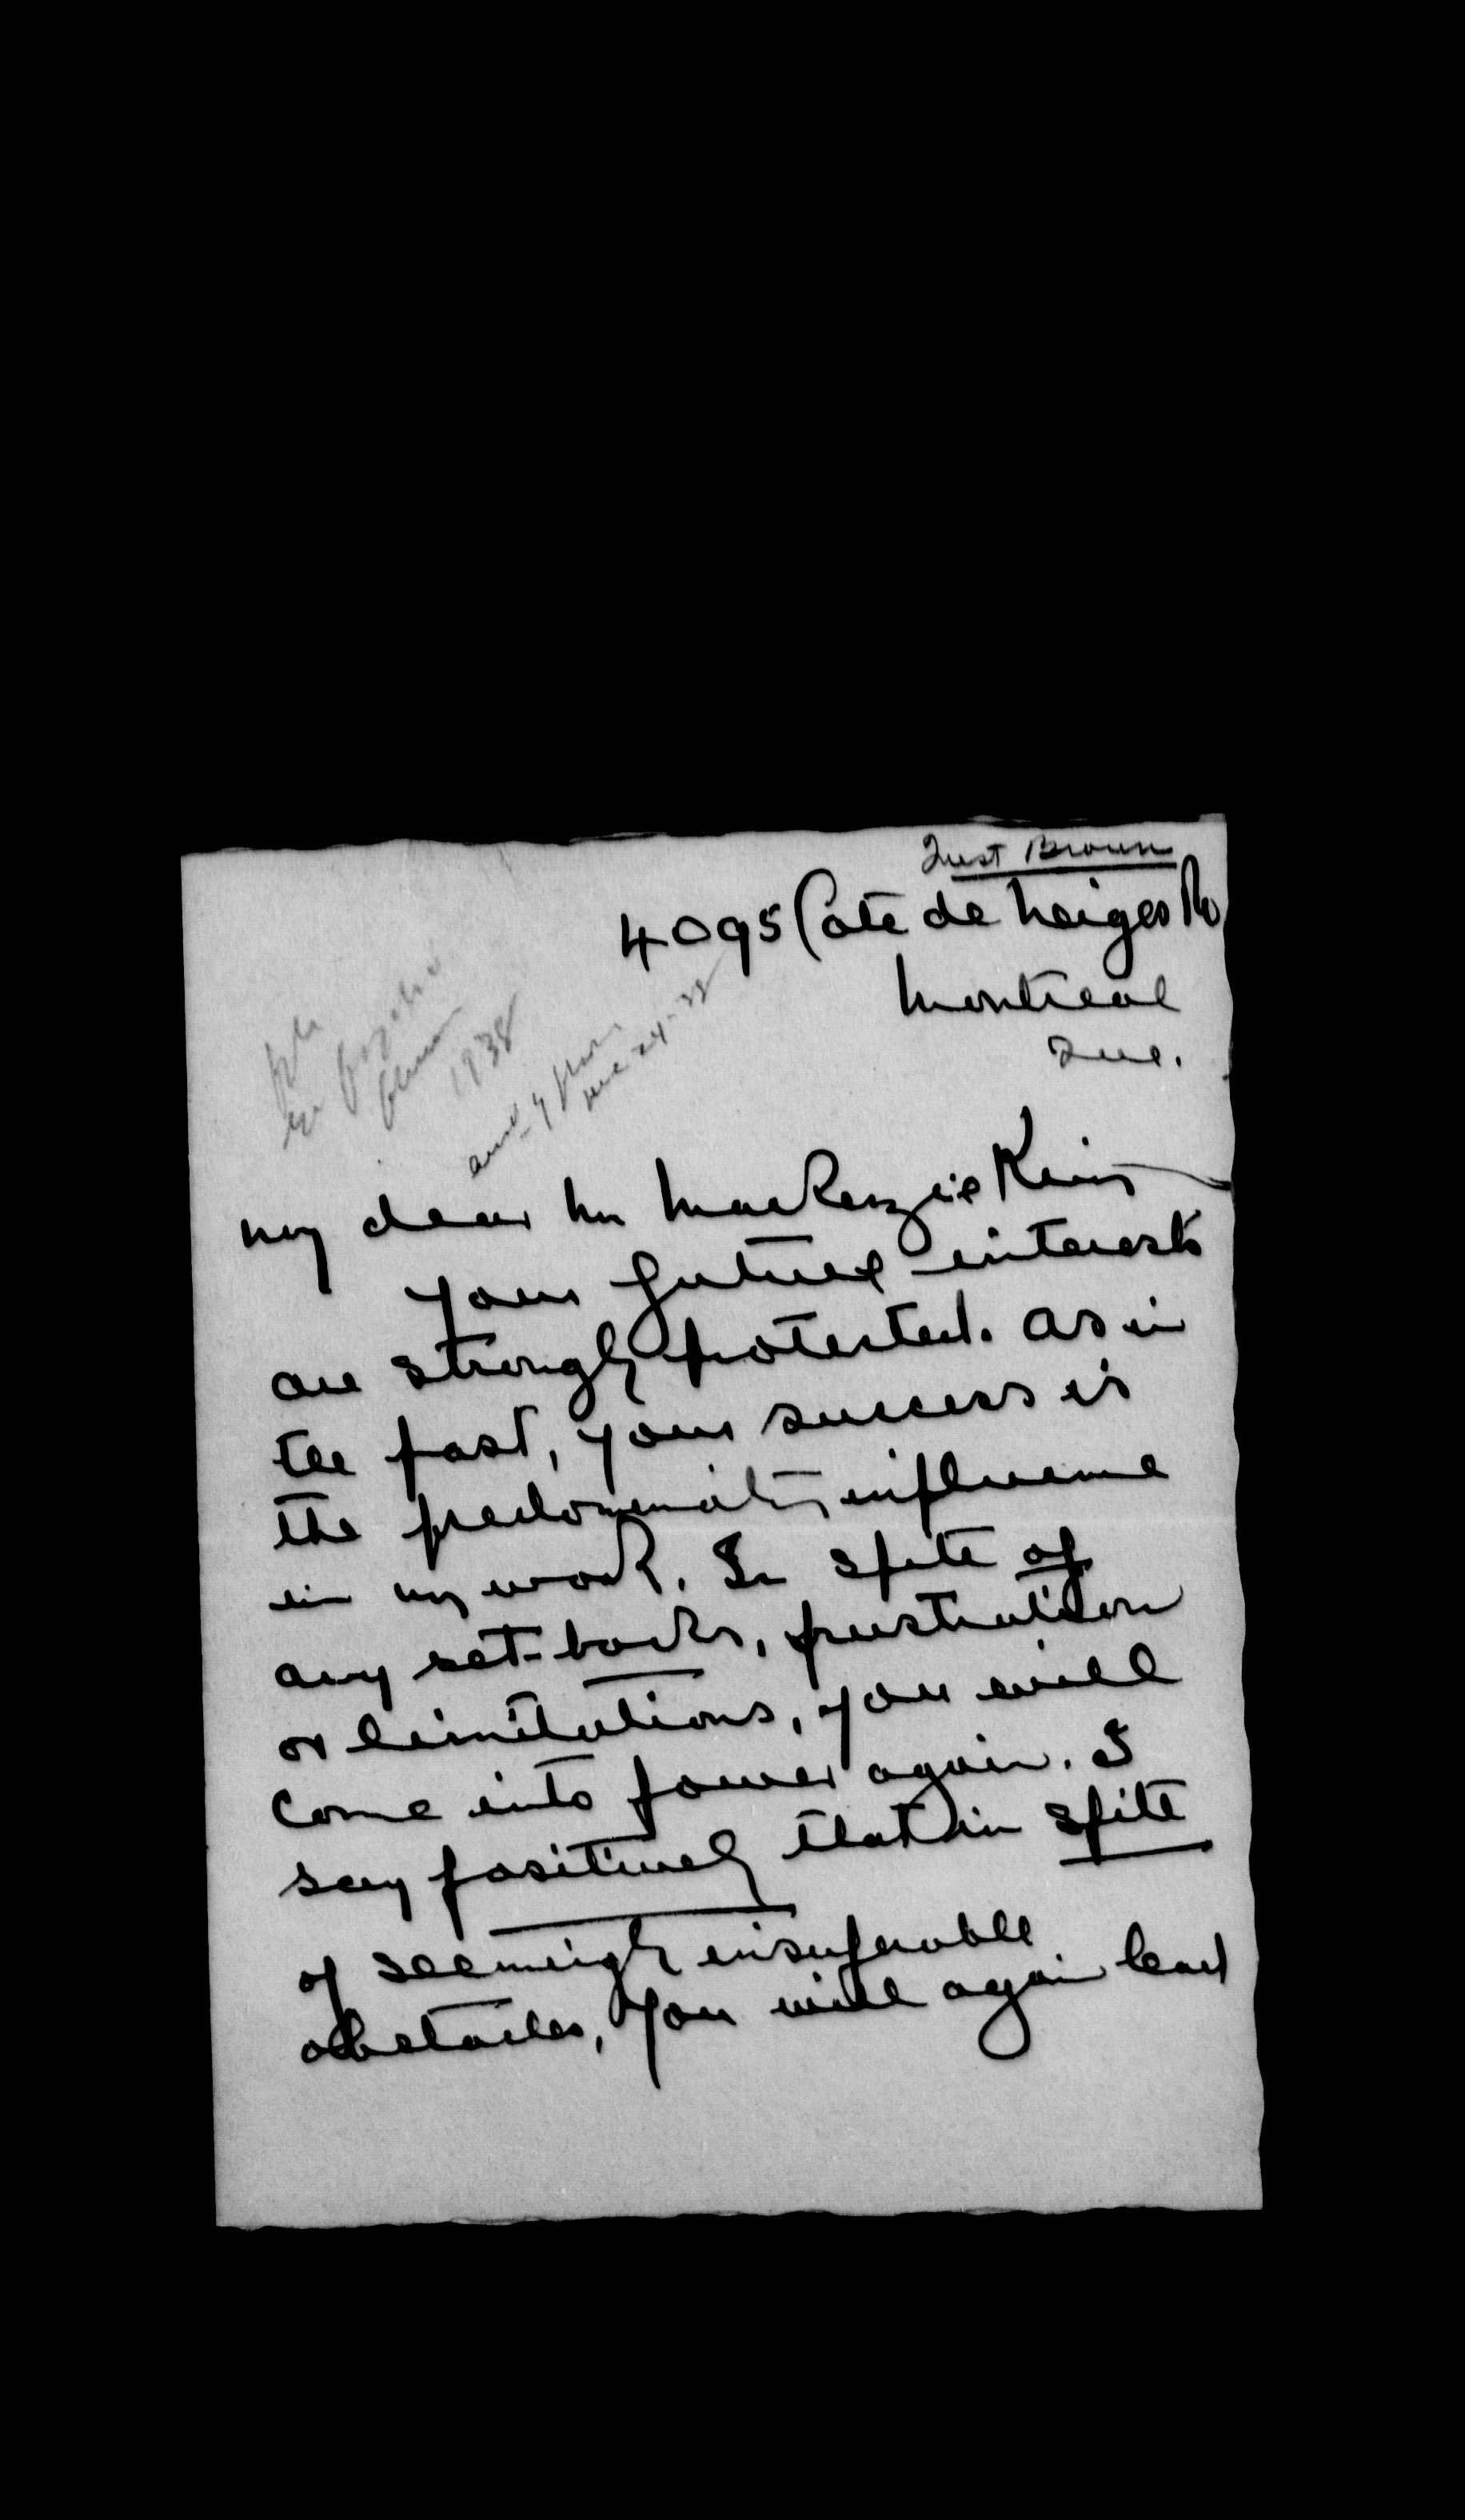 Just Brown
4095 Cote de Neiges Rd
Montreal
Que.
1938
Dec 24-38
My dear Mr Mackenzie King
Your future interests
are strongly protected. As in
the past, your success is
the predominating influence
in my work. In spite of
any set-backs, frustration
or limitations, you will
come into power again. I
say positively that in spite
of seemingly insuperable
obstacles, you will again lead